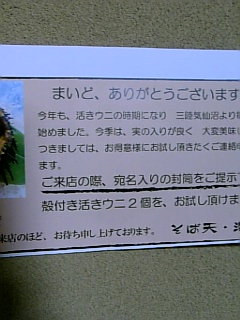 まいど、ありがとうございます
今年も、活きウニの時期になり 三陸気仙沼より
始めました。今季は、実の入りが良く 大変美味し
つきましては、お得意様にお試し頂きたくご連絡
ます。
ご来店の際、宛名入りの封筒をご提示
殻付き活きウニ２個を、お試し頂けま
来店のほど、お待ち申し上げております。 そば天・